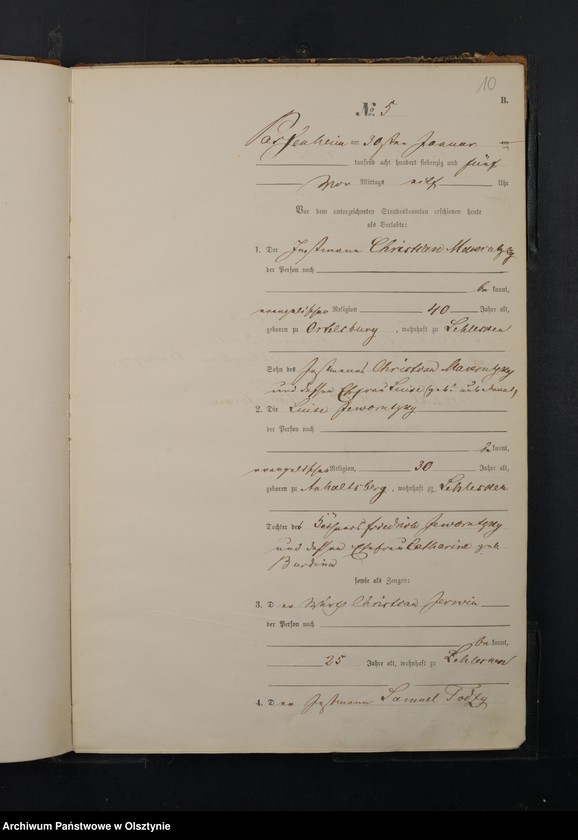 10
B.
№ 5
Passenheim am 30sten Januar
tausend acht hundert siebenzig und fünf
Vor Mittags elf Uhr
Vor dem unterzeichneten Standesbeamten erschienen heute
als Verlobte:
1. Der Instmann Christian
der Person nach
be kannt,
evangelischer Religion 40 Jahre alt,
geboren zu Ortelsburg, wohnhaft zu Lehlesken
Sohn des Instmanns Christian
und dessen Ehefrau Luise geb: unbekannt
2. Die Luise Jeworutzky
der Person nach
be kannt,
evangelischer Religion, 30 Jahre alt,
geboren zu Anhaltsberg, wohnhaft zu Lehlesken
Tochter des Friedrich Jeworutzky
und dessen Ehefrau Catharine geb.
Burdina
sowie als Zeugen:
3. Der Wirth Christian Jerwin
der Person nach
be kannt,
25 Jahre alt, wohnhaft zu Lehlesken
4. Der Instmann Samuel
Archiwum Państwowe w Olsztynie